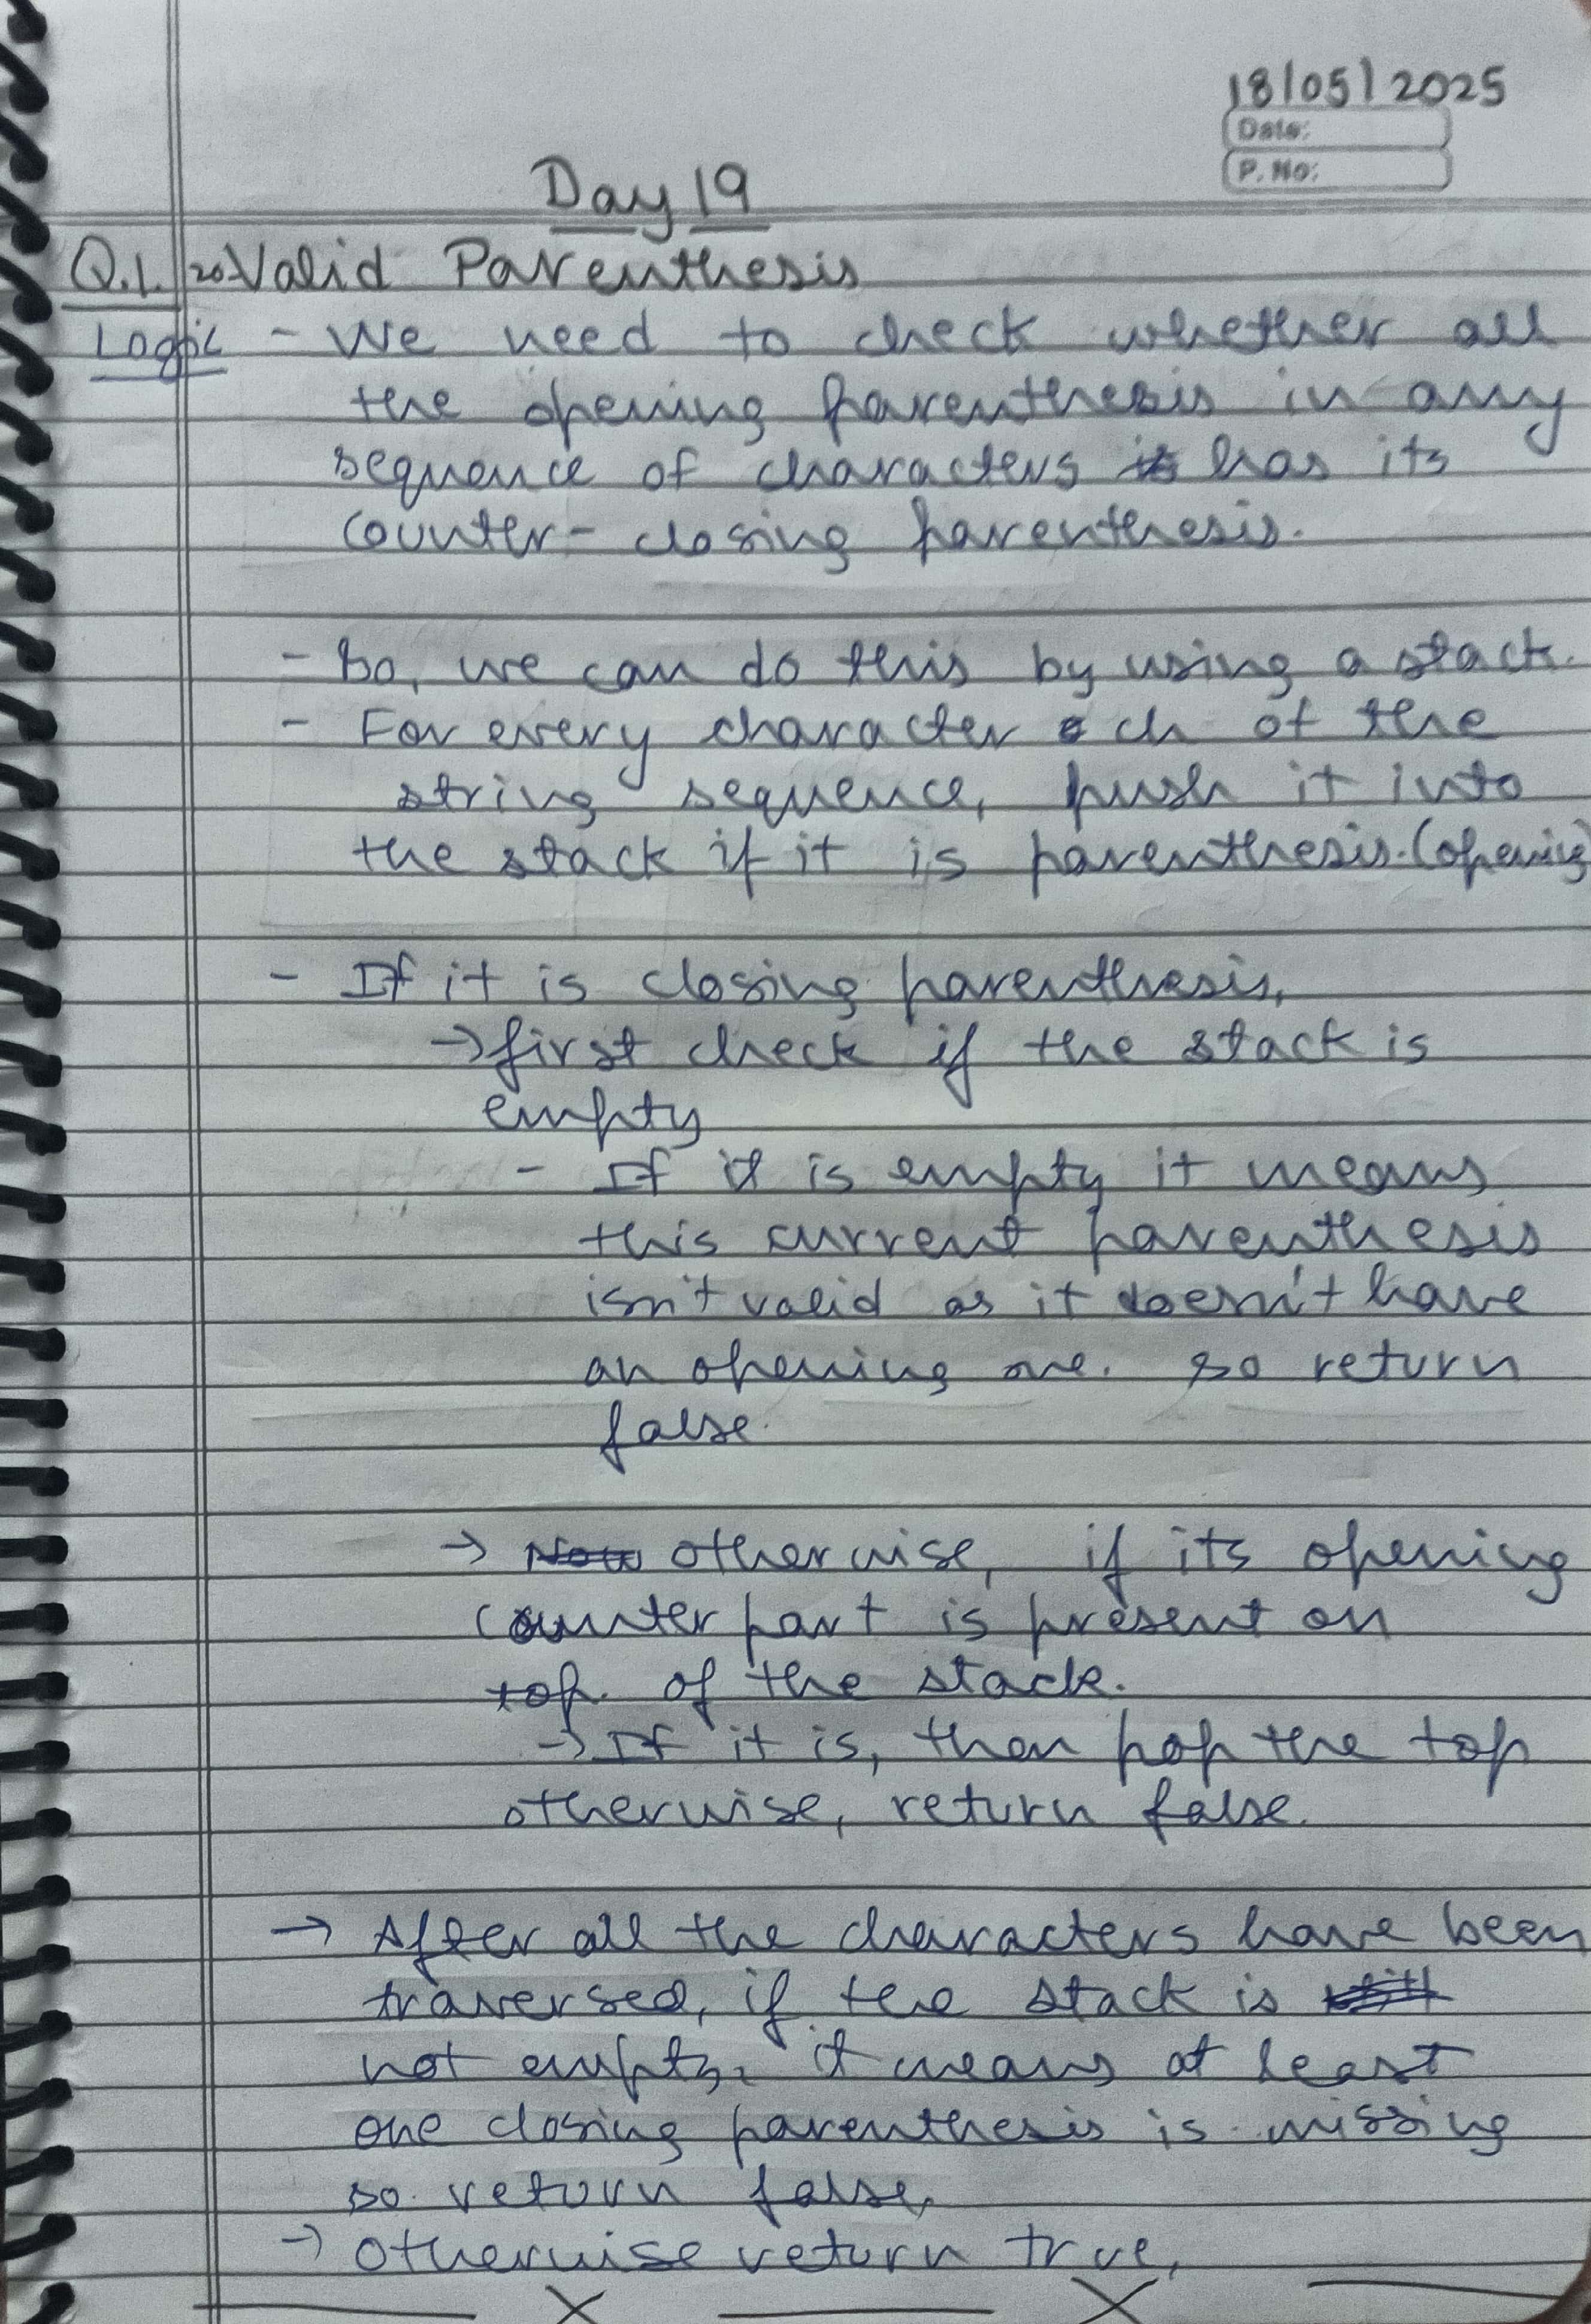 18/05/2025
Date:
P. No:
Day 19
Q.1. 20. Valid Parenthesis
Logic - We need to check whether all
the opening parenthesis in any
sequence of characters is has its
counter-closing parenthesis.
- So, we can do this by using a stack.
- For every character ch of the
string sequence, push it into
the stack if it is parenthesis. (opening)
- If it is closing parenthesis,
→ first check if the stack is
empty
- If it is empty it means
this current parenthesis
isn't valid as it doesn't have
an opening one. so return
false.
→ Now otherwise, if its opening
counterpart is present on
top of the stack.
→ If it is, then pop the top
otherwise, return false.
→ After all the characters have been
traversed, if the stack is still
not empty, it means at least
one closing parenthesis is missing
so return false,
→ Otherwise return true,